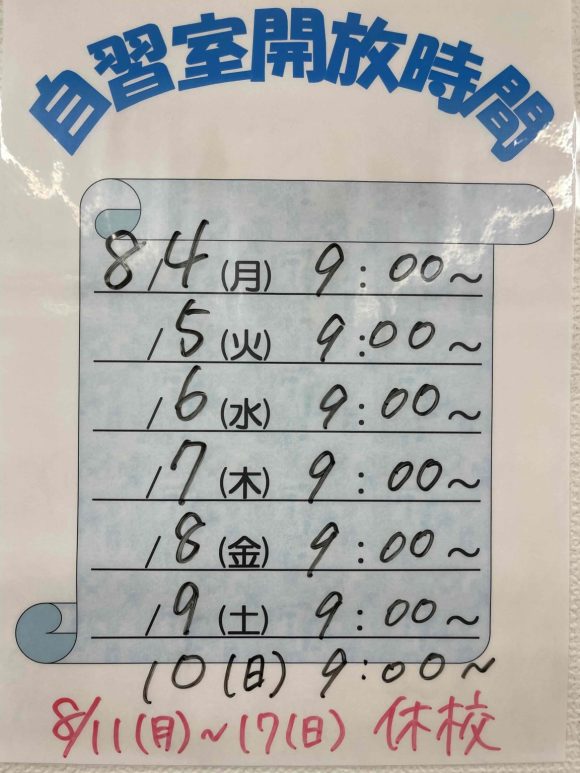 自習室開放時間
8/4(月) 9:00~
/5(火) 9:00~
/6(水) 9:00~
/7(木) 9:00~
/8(金) 9:00~
/9(土) 9:00~
10(日) 9:00~
8/11(月)~17(日) 休校